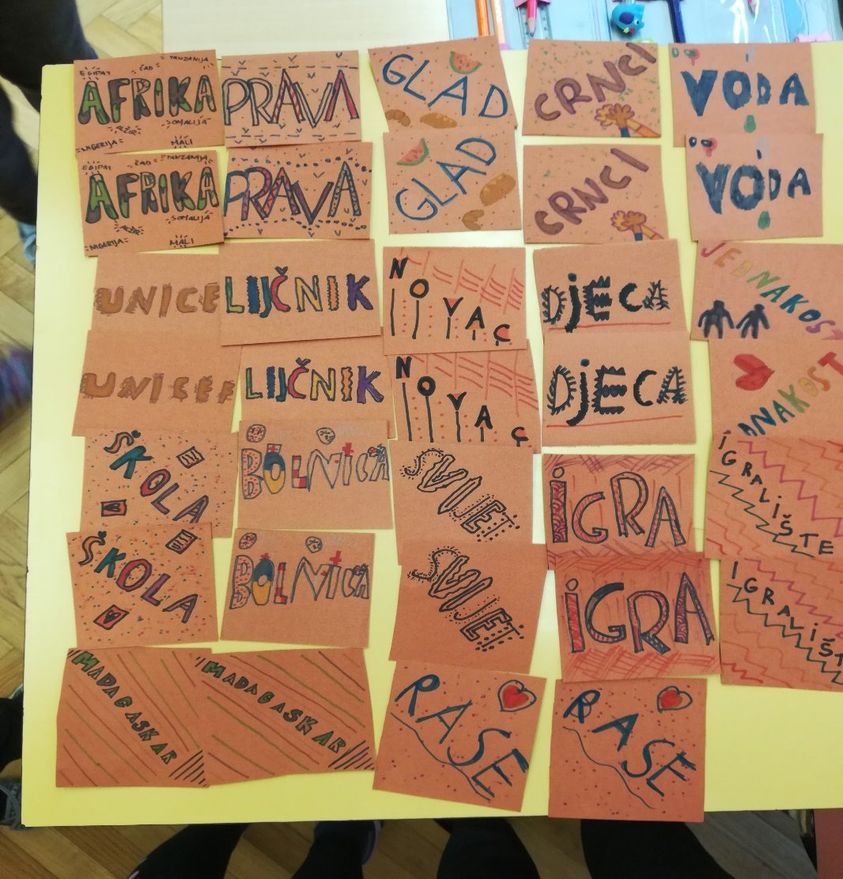 EGIPAT ČAD TANZANIJA
AFRIKA
SOMALIJA
MALI
PRAVA
GLAD
CRNCI
VODA
EGIPAT ČAD TANZANIJA
AFRIKA
SOMALIJA
MALI
PRAVA
GLAD
CRNCI
VODA
UNICE
LIJČNIK
NOVAC
DJECA
JEDNAKOST
UNICEF
LIJČNIK
NOVAC
DJECA
DNAKOST
ŠKOLA
BOLNICA
SVIJET
IGRA
IGRALIŠTE
ŠKOLA
BOLNICA
SVIJET
IGRA
IGRALIŠTE
MADAGASKAR
MADAGASKAR
RASE
RASE